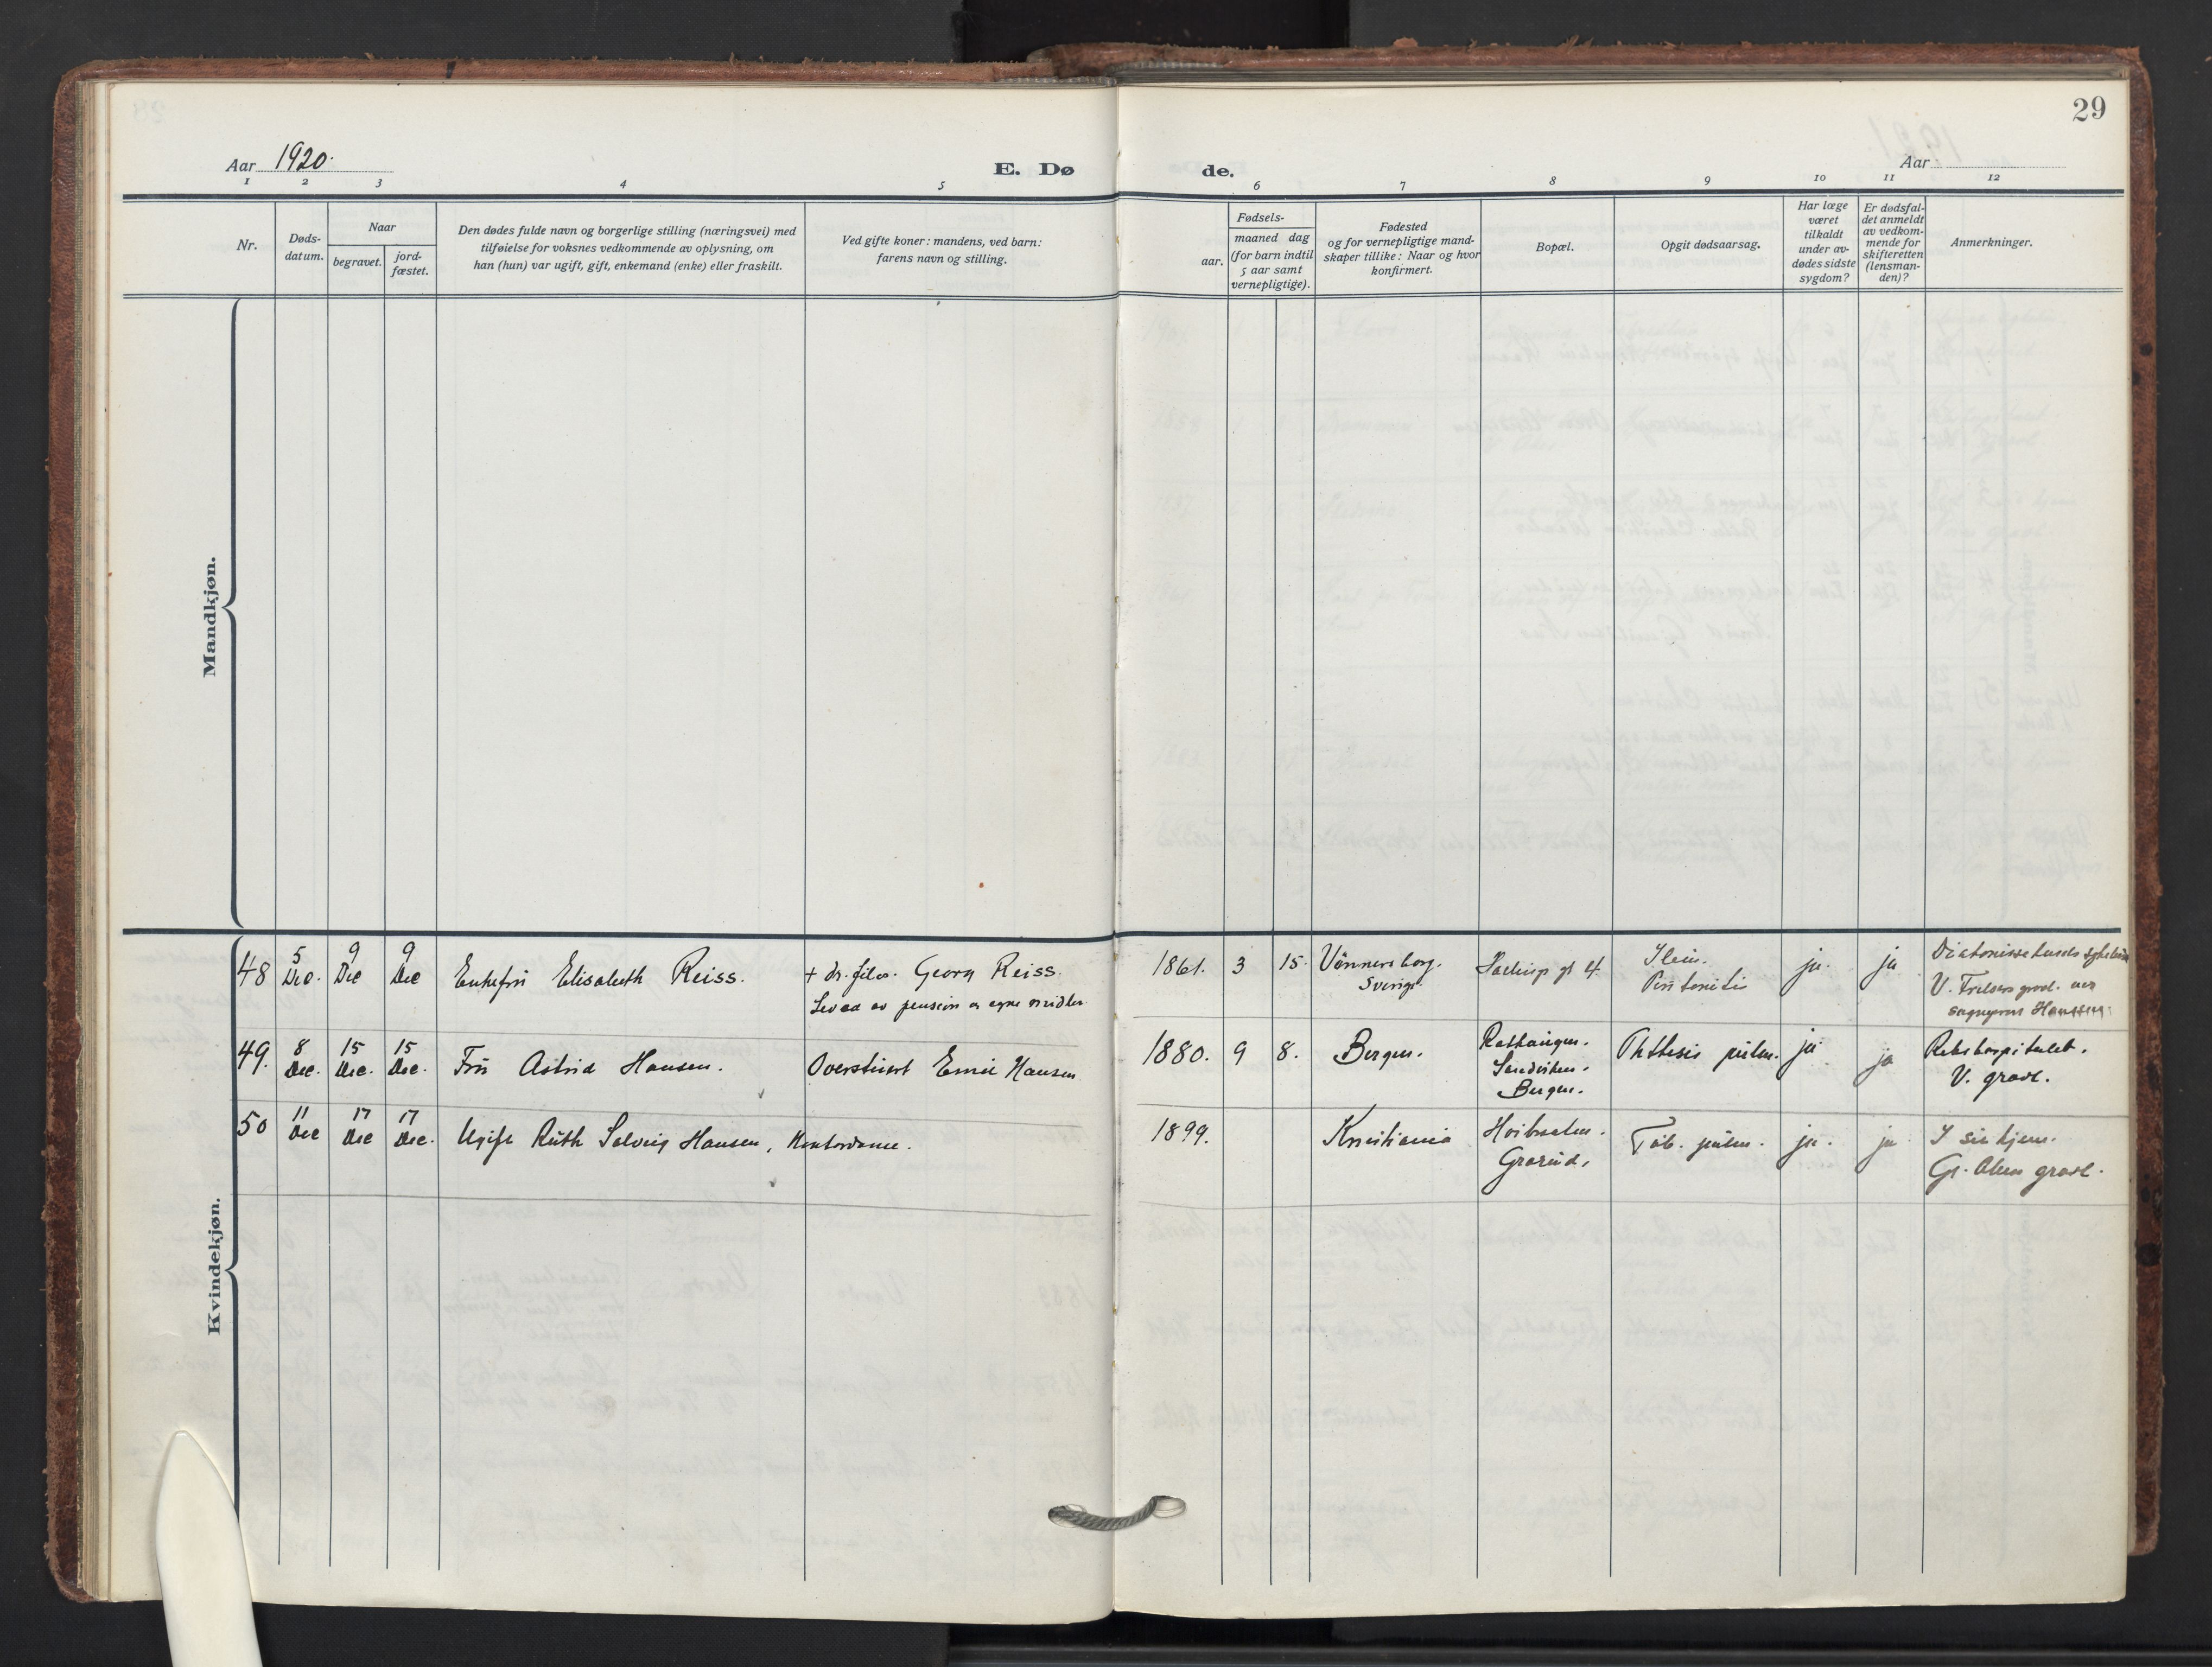 29
Aar 1920.
E. Dø
de.
Aar
1 2 3 4 5
6 7 8 9 10 11 12
Nr.
Døds-
datum.
Naar
begravet.
jord-
fæstet.
Den dødes fulde navn og borgerlige stilling (næringsvei) med
tilføielse for voksnes vedkommende av oplysning, om
han (hun) var ugift, gift, enkemand (enke) eller fraskilt.
Ved gifte koner: mandens, ved barn:
farens navn og stilling.
aar.
Fødsels-
maaned dag
(for barn indtil
5 aar samt
vernepligtige).
Fødested
og for vernepligtige mand-
skaper tillike: Naar og hvor
konfirmert.
Bopæl.
Opgit dødsaarsag.
Har læge
været
tilkaldt
under av-
dødes sidste
sygdom?
Er dødsfal-
det anmeldt
av vedkom-
mende for
skifteretten
(lensman-
den)?
Anmerkninger.
Mandkjøn.
Kvindekjøn.
48
5 Dec.
9 Dec
9 Dec
Enkefru Elisabeth Reiss.
+ dr. filos. Georg Reiss.
Leved av pension og egne midler
1861. 3 15.
Vennersborg.
Sverige.
gt 4
Ilein.
Peritonitis
ja.
ja
V. Frelsers gravl.
49.
8 Dec.
15 Dec.
15 Dec.
Fru Astrid Hansen.
Overstuert Emil Hansen
1880. 9 8.
Bergen.
Rothaugen.
Sandviken.
Bergen.
Phthisis pulm.
ja
ja
Rikshospitalet.
V. gravl.
50
11 Dec
17 Dec
17 Dec.
Ugift Ruth Solveig Hansen, Kontordame.
1899.
Kristiania
Høibraaten.
Grorud.
Tub. pulm.
ja.
ja
I sit hjem.
Gr. Aker gravl.